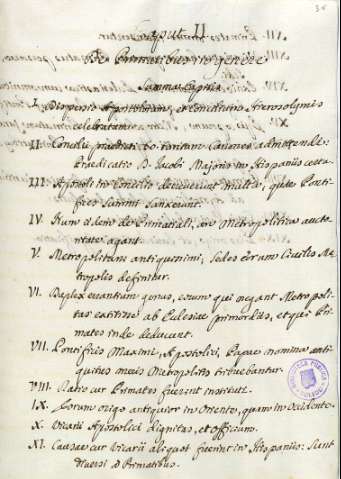 Caput II
De Primatibus in genere
Summa Capitis
I. Dispersio Apostolorum, et Concilium Hierosolymis
celebratum.
II. Concilii praedicti
Praedicatio B. Jacobi Majoris in Hispaniis certa.
III. Apostoli in Concilio decreverunt multa, quae Ponti-
fices Summi sanxerunt.
IV. Num idem de Primatiali, ac Metropolitica aucto-
ritate agant.
V. Metropolitani antiquissimi, Sedes eorum Civiles Me-
tropoles definitur.
VI. Duplex errantium genus, eorum qui negant Metropoli-
tas extitisse ab Eclesiae primordiis, et qui Pri-
mates inde deducunt.
VII. Pontificis Maximi, Apostolici, Papae nomina anti-
quitus Metropolitis tribuebantur.
VIII. Ratio cur Primates fuerint instituti.
IX. Eorum origo antiquior in Oriente, quam in Occidente.
X. Vicarii Apostolici dignitas, et officium.
XI. Causae cur Vicarii aliquot fuerint in Hispaniis: Sunt
diversi a Primatibus.